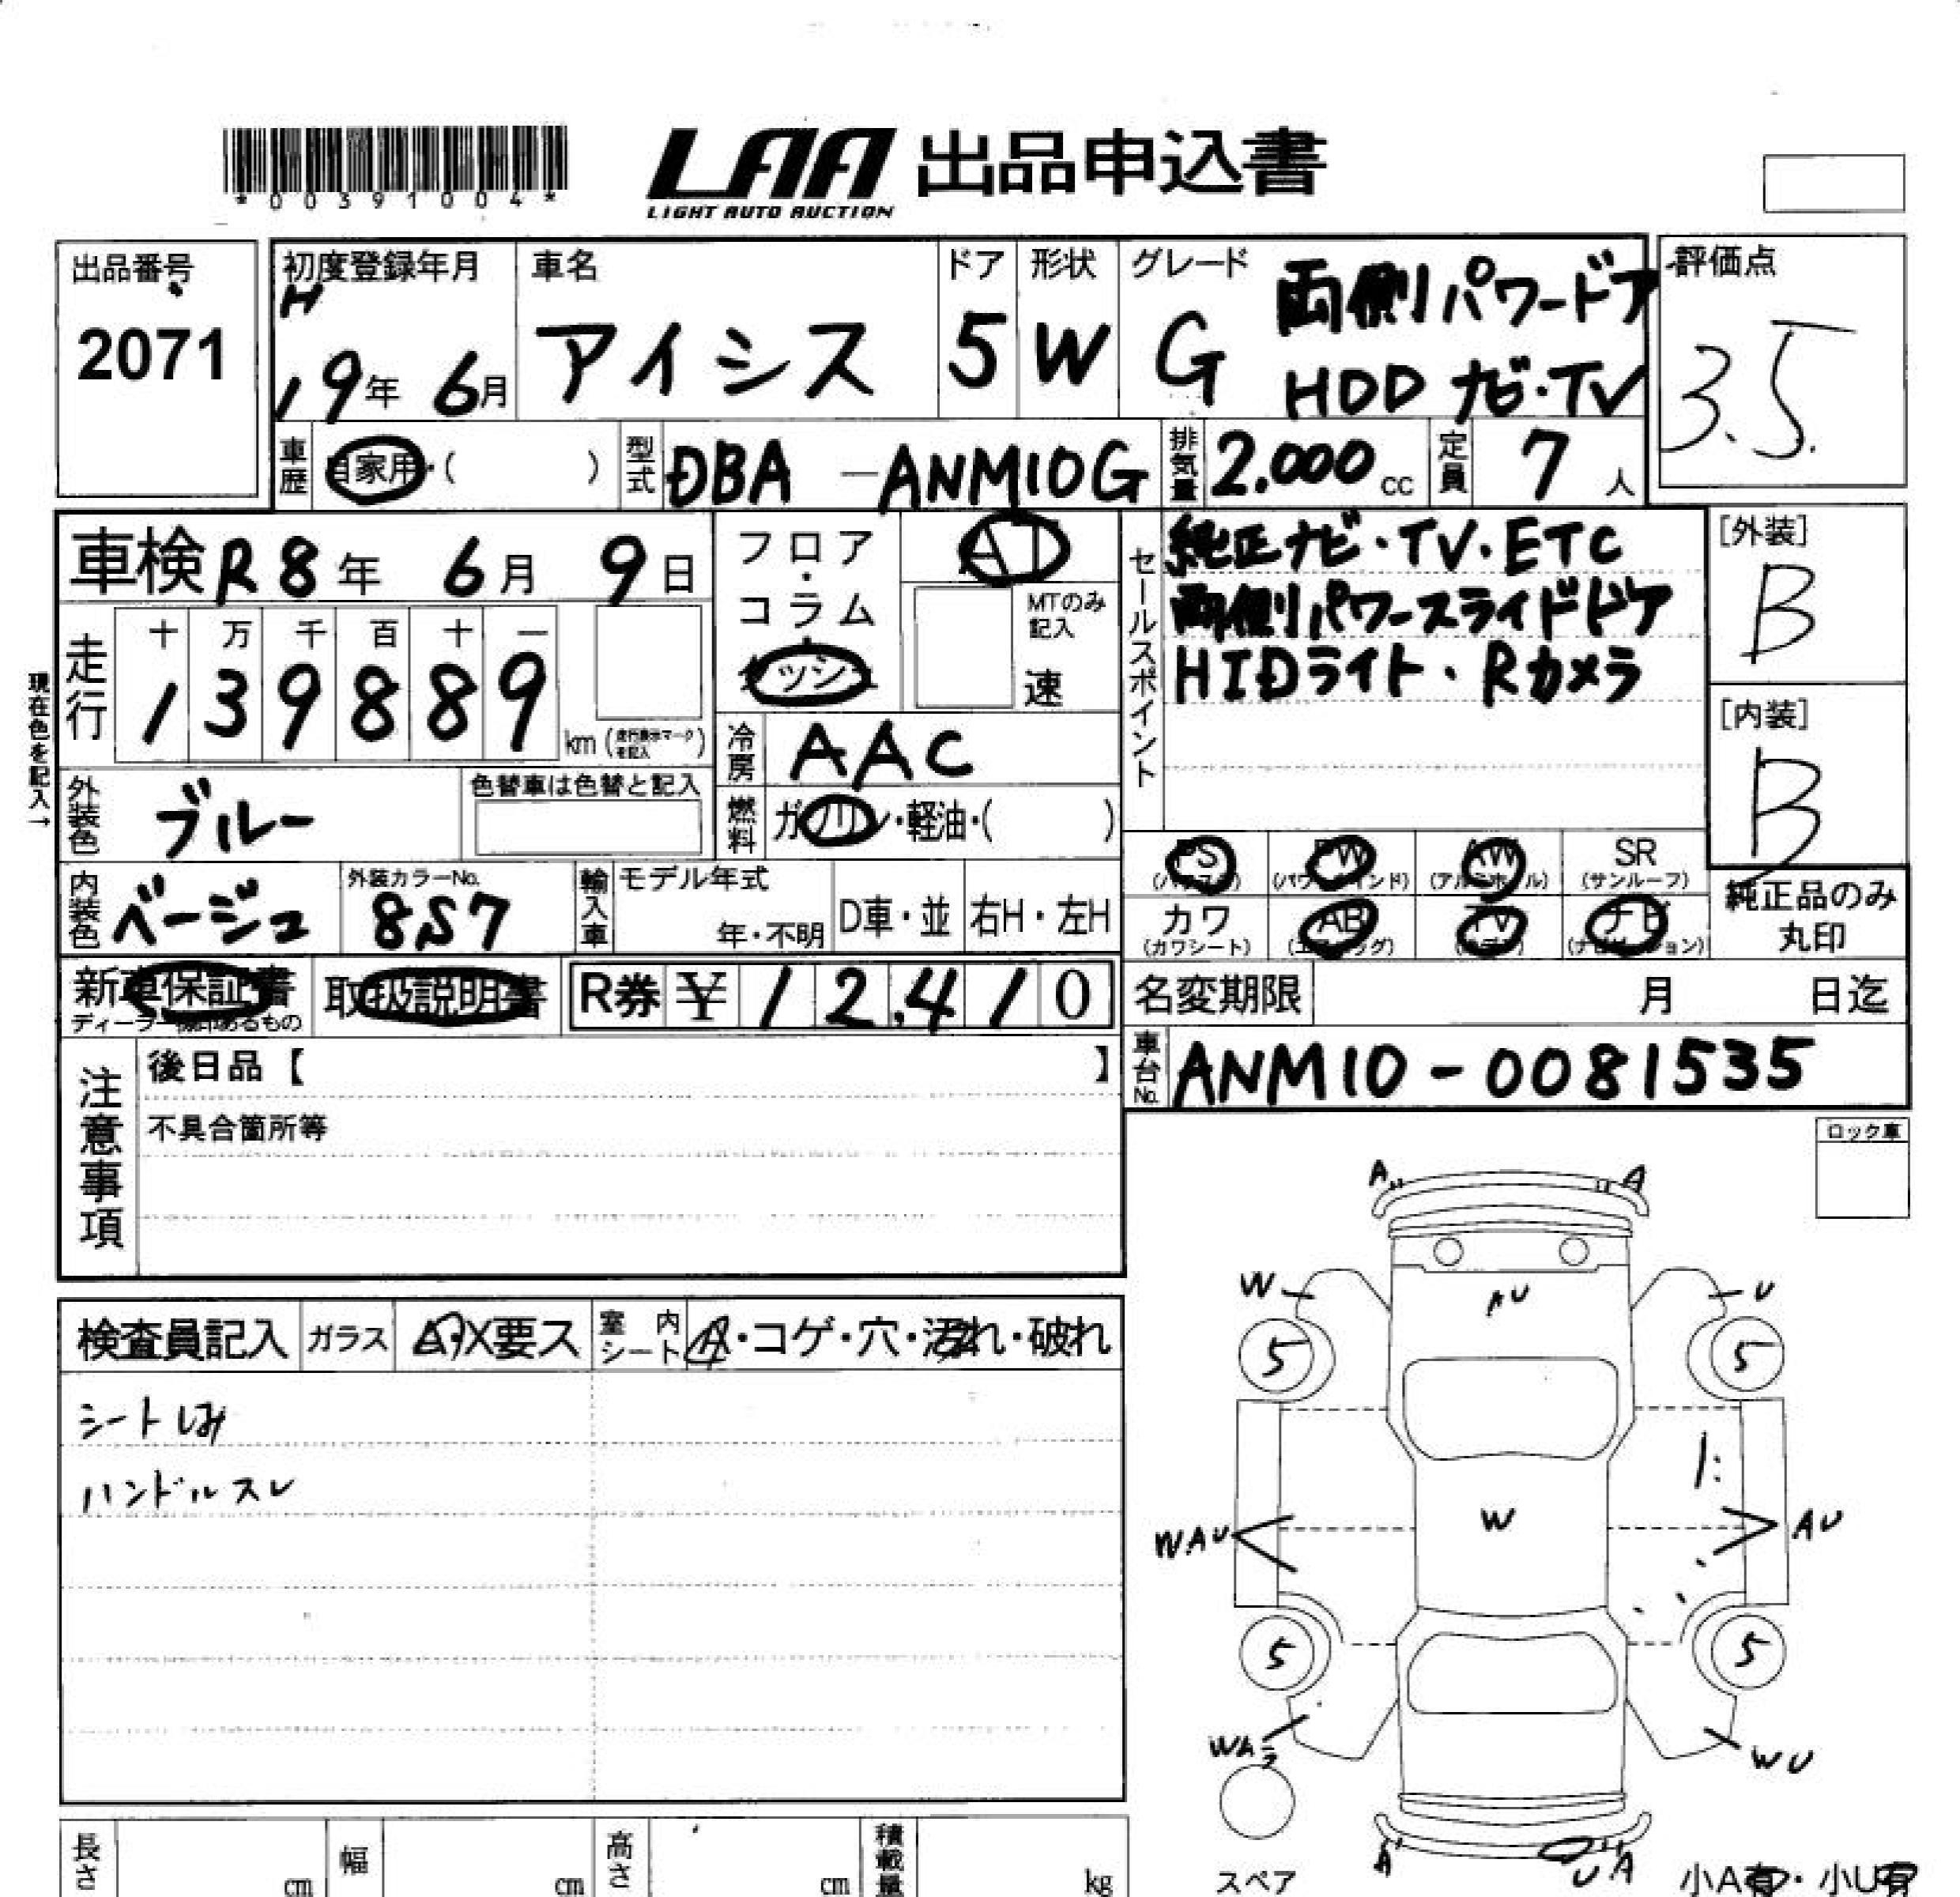 *00391004*
LAA 出品申込書
LIGHT AUTO AUCTION
出品番号
2071
初度登録年月
H
19年 6月
車名
アイシス
ドア
5
形状
W
グレード
G 両側パワードア
HDD ナビ・TV
評価点
3.5
車歴 自家用・( )
型式 DBA-ANM10G
排気量 2.000 cc
定員 7 人
車検 R8年 6月 9日
フロア・コラム・ダッシュ
AT
MTのみ記入
速
セールスポイント
純正ナビ・TV・ETC
両側パワースライドドア
HIDライト・Rカメラ
[外装]
B
[内装]
B
現在色を記入→
走行
十 万 千 百 十 一
1 3 9 8 8 9
km (走行表示マークを記入)
冷房 AAC
外装色 ブルー
色替車は色替と記入
燃料 ガソリン・軽油・( )
内装色 ベージュ
外装カラーNo.
8S7
輸入車
モデル年式
年・不明
D車・並
右H・左H
PS PW AW SR
(パワステ) (パワーウインド) (アルミホイール) (サンルーフ)
カワ AB TV ナビ
(カワシート) (エアバッグ) (ナビゲーション)
純正品のみ
丸印
新車保証書
ディーラー捺印あるもの
取扱説明書
R券 ¥ 12,410
名変期限 月 日迄
車台No. ANM10-0081535
注意事項
後日品【 】
不具合箇所等
ロック車
検査員記入
ガラス
A・X要ス
室内シート
A・コゲ・穴・汚れ・破れ
シートしみ
ハンドルスレ
A A
W AU U
5 5
WAU W AU
5 5
WU
A UA
スペア
小A有・小U有
長さ cm
幅 cm
高さ cm
積載量 kg